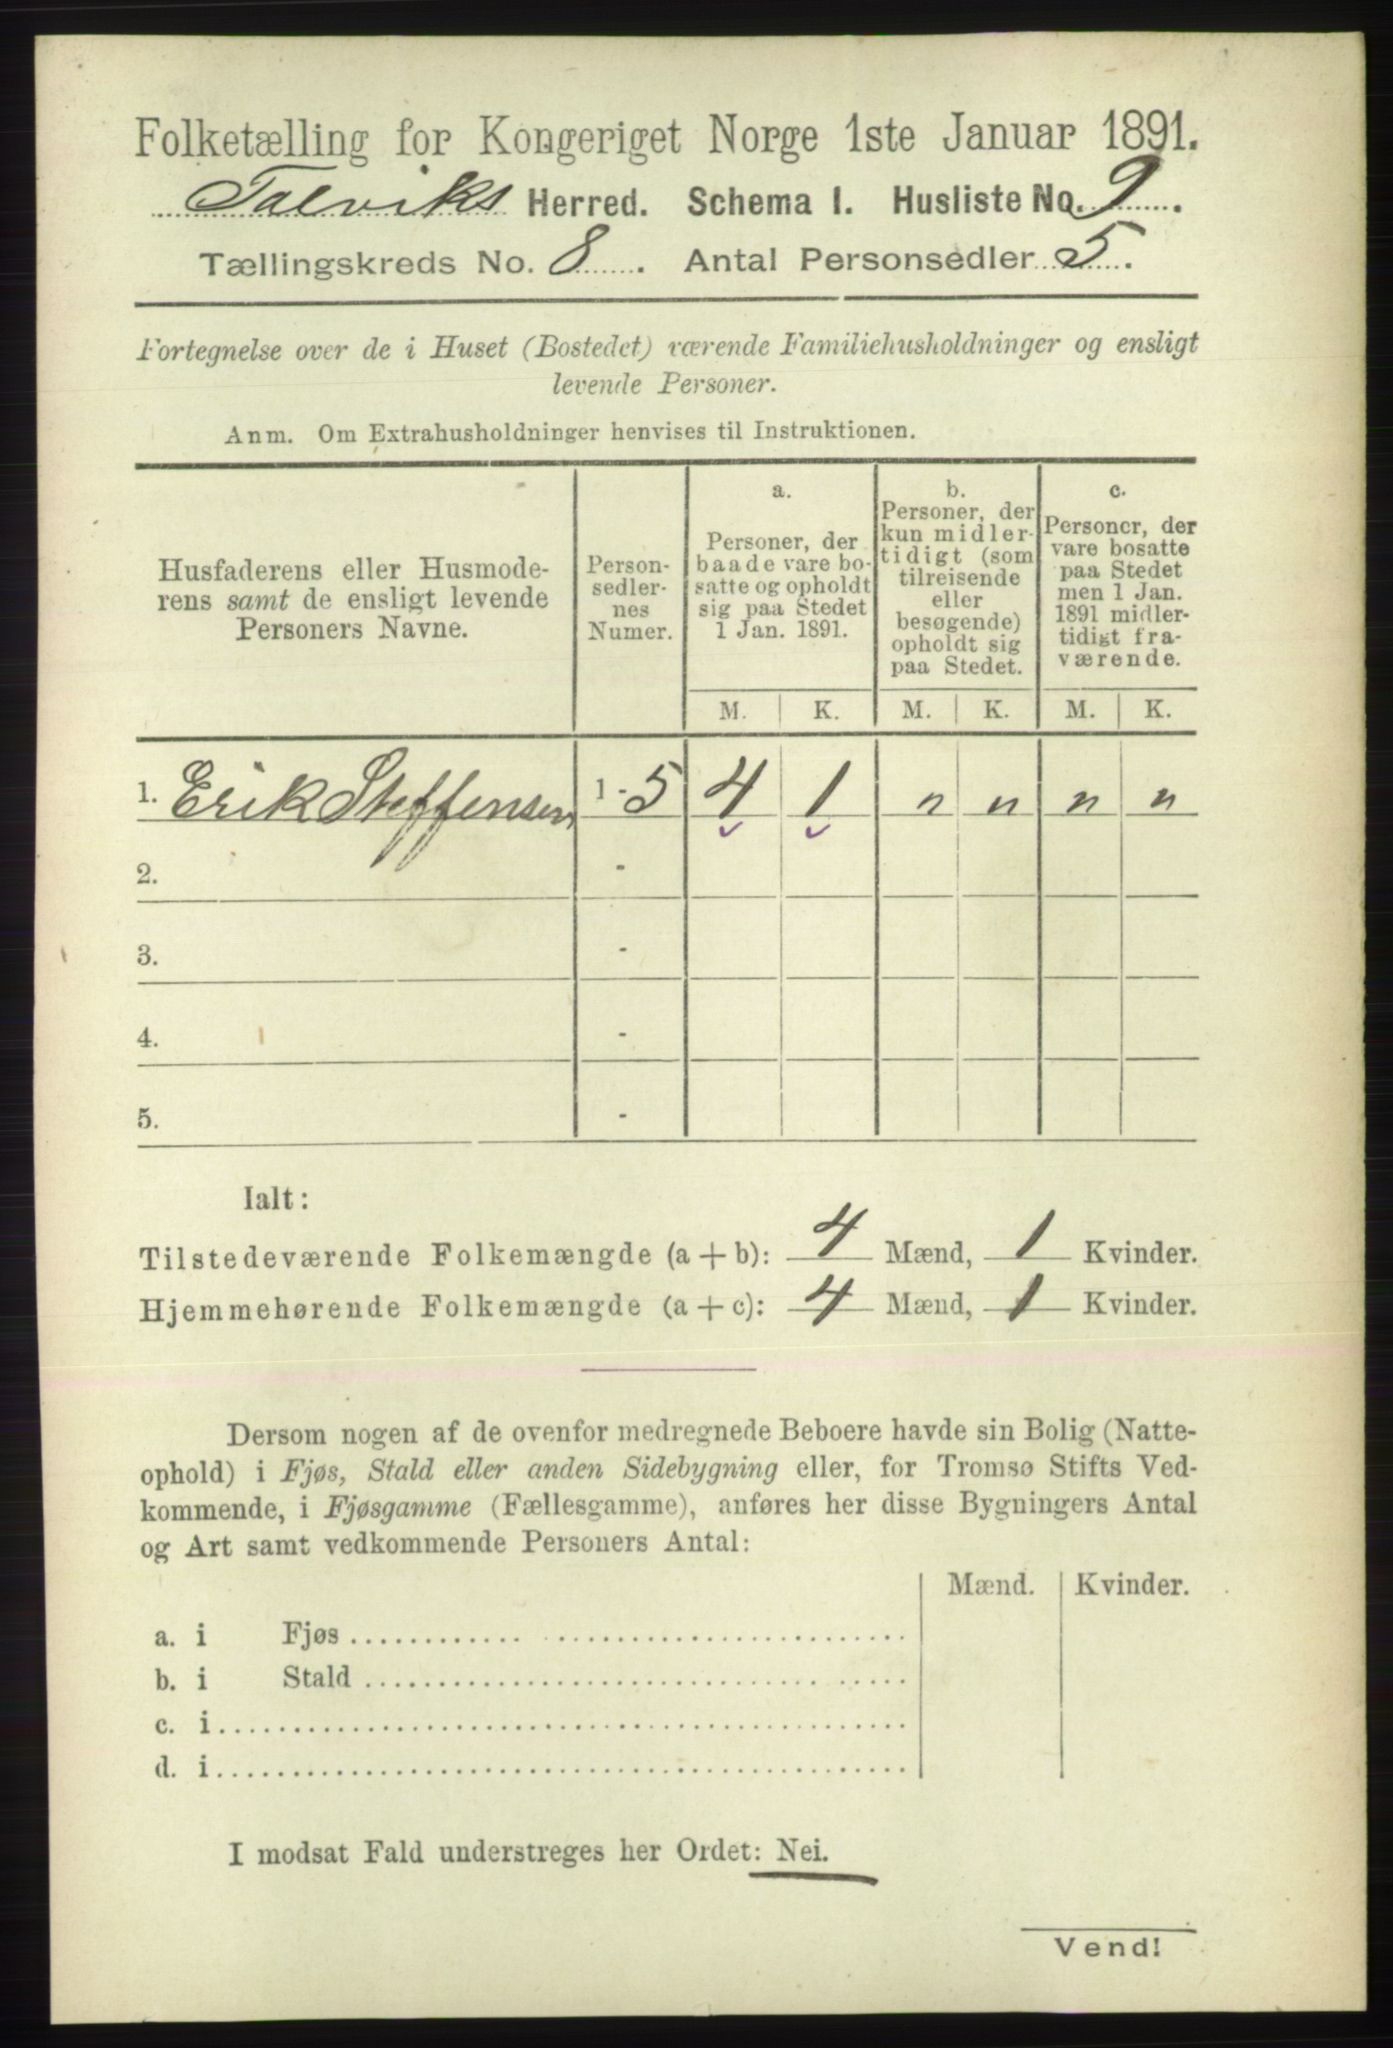 Folketælling for Kongeriget Norge 1ste Januar 1891.
Talviks Herred. Schema I. Husliste No. 9.
Tællingskreds No. 8. Antal Personsedler 5.
Fortegnelse over de i Huset (Bostedet) værende Familiehusholdninger og ensligt
levende Personer.
Anm. Om Extrahusholdninger henvises til Instruktionen.
Husfaderens eller Husmode-
rens samt de ensligt levende
Personers Navne.
Person-
sedler-
nes
Numer.
a.
Personer, der
baade vare bo-
satte og opholdt
sig paa Stedet
1 Jan. 1891.
b.
Personer, der
kun midler-
tidigt (som
tilreisende
eller
besøgende)
opholdt sig
paa Stedet.
c.
Personer, der
vare bosatte
paa Stedet
men 1 Jan.
1891 midler-
tidigt fra-
værende.
M. K. M. K. M. K.
1. Erik Steffensen 1-5 4 1 " " " "
2. -
3. -
4. -
5. -
Ialt:
Tilstedeværende Folkemængde (a + b): 4 Mænd, 1 Kvinder.
Hjemmehørende Folkemængde (a + c): 4 Mænd, 1 Kvinder.
Dersom nogen af de ovenfor medregnede Beboere havde sin Bolig (Natte-
ophold) i Fjøs, Stald eller anden Sidebygning eller, for Tromsø Stifts Ved-
kommende, i Fjøsgamme (Fællesgamme), anføres her disse Bygningers Antal
og Art samt vedkommende Personers Antal:
Mænd. Kvinder.
a. i Fjøs
b. i Stald
c. i
d. i
I modsat Fald understreges her Ordet: Nei.
Vend!